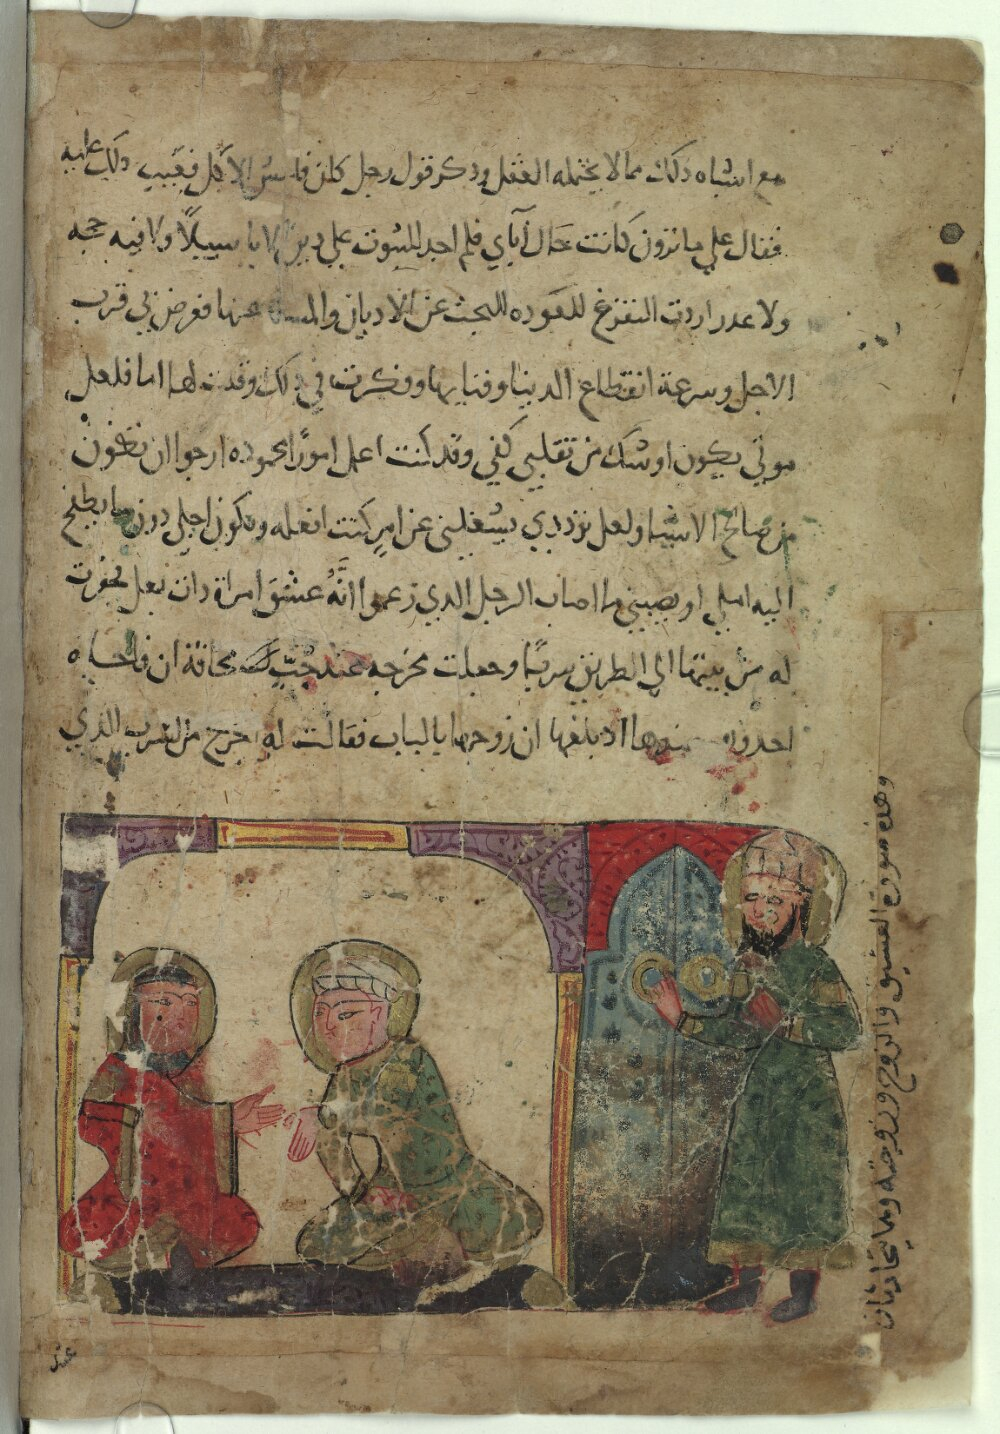 مع اشباه ذلك مما لا يحتمله العقل وذكر قول رجل كان فاحش الاكل فعيب ذلك عليه
فقال علي ما ترون كانت حال آباي فلم اجد للثبوت علي دين الابا سبيلا ولا فيه حجه
ولا عذر اردت التفرغ للعوده للبحث عن الاديان عنها فعرض لي قرب
الاجل وسرعة انقطاع الدنيا وفنايها وفكرت في ذلك وقلت اما فلعل
موتي يكون اوشك من تقليبي كفي وقد كنت اعمل امورا محموده ارجوا ان تكون
من صالح الاشيا ولعل ترددي يشغلني عن امر كنت افعله ويكون اجلي دون ما يطمح
اليه املي او يصيبني ما اصاب الرجل الدي زعموا انه عشق امراة دات بعل فحفرت
له من بيتها الي الطريق سربا وجعلت مخرجه عند جب مخافة ان فاجاه
احدوه عندها اد بلغها ان زوجها بالباب فقالت له اخرج من السرب الدي
وهذه صورة العشيق والزوج وزوجته وهما يتحادثان